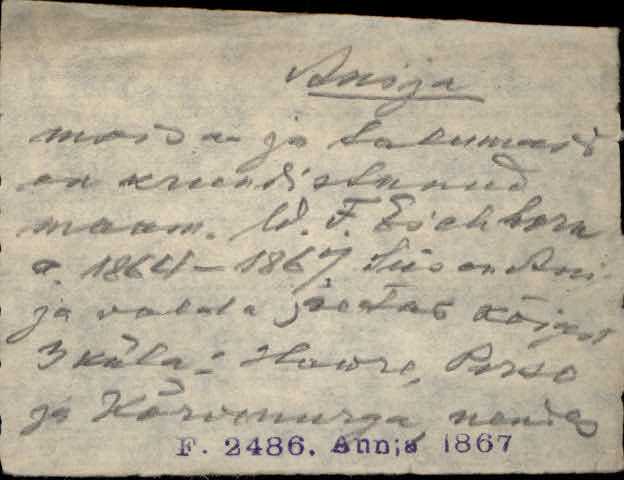 Anija
moisa ja talumaad
on krundistanud
maam. W. F. Eichhorn
a. 1864-1867. Siis on Ani
ja valala jäetas kõigest
3 küla: Hawre, Parso
ja Kõrwenurga, nendes
F. 2486. Annja 1867